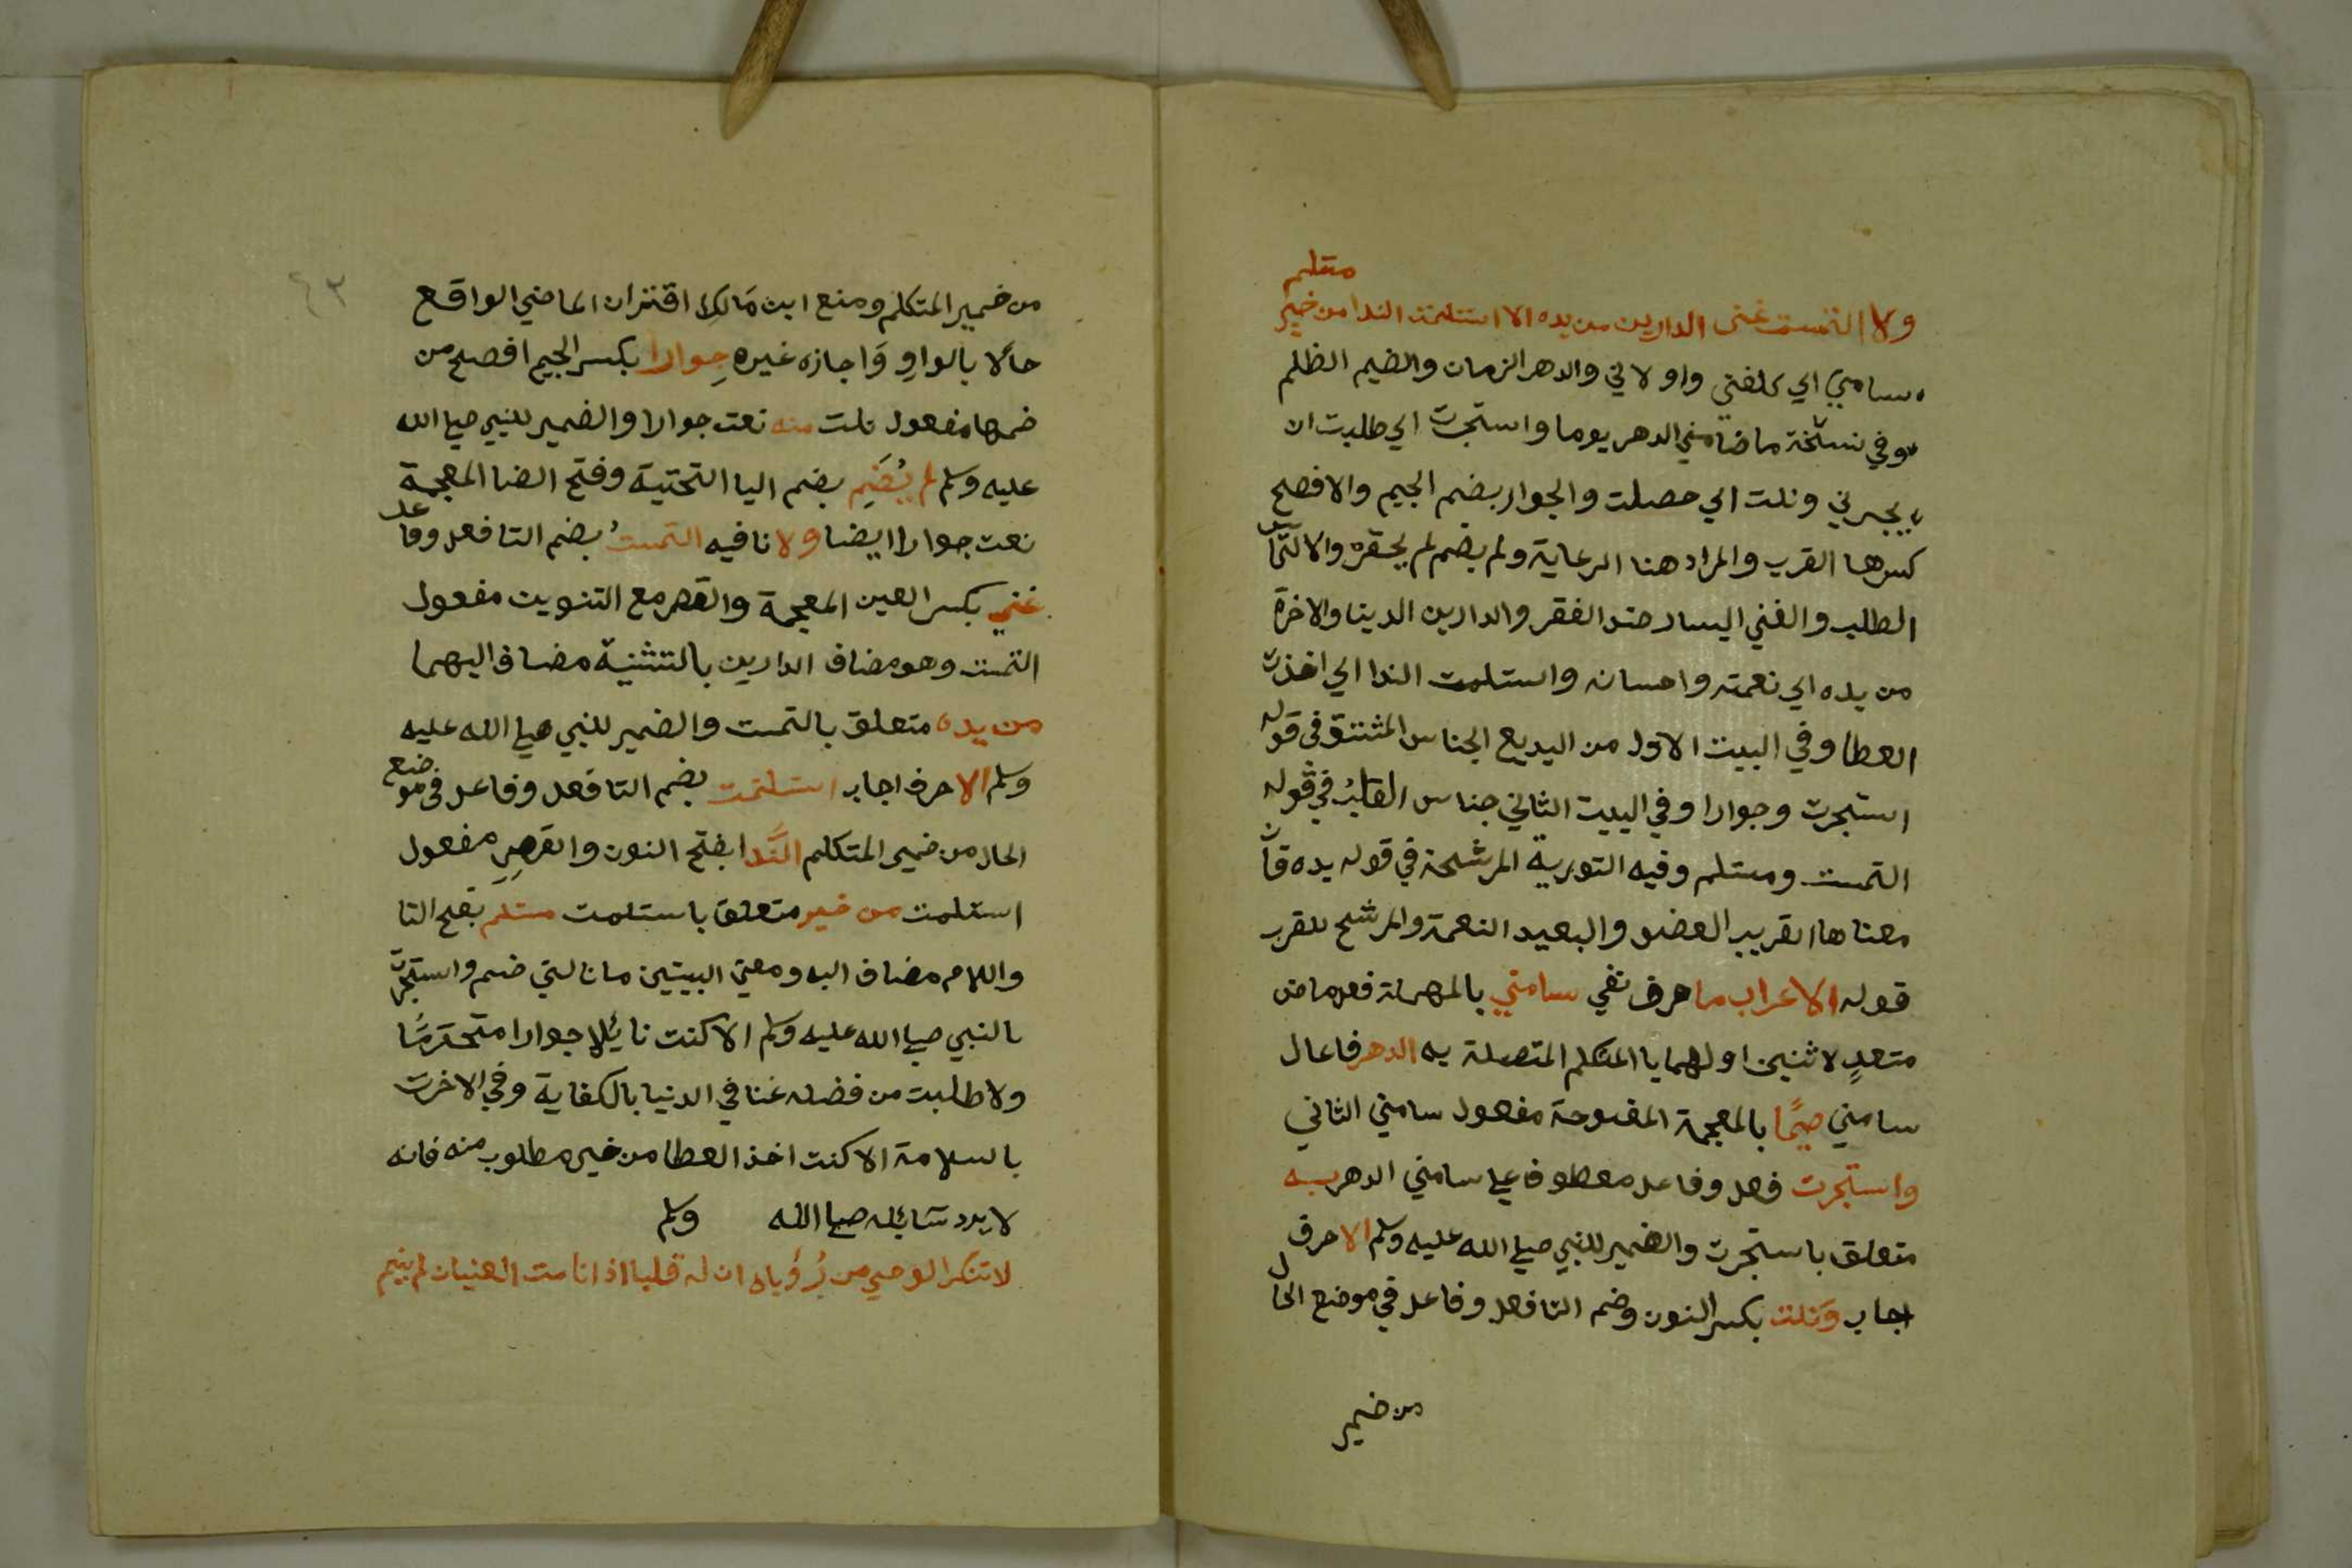 ولا التمست غنى الدارين من يده الا استلمت الندا من خير
مستلم
سامني اي كلفني واولاني والدهر الزمان والضيم الظلم
وفي نسخة ما ضامني الدهر يوما واستجرت اي طلبت ان
يجيرني ونلت اي حصلت والجوار بضم الجيم والافصح
كسرها القرب والمراد هنا الرعاية ولم يضم لم يحقره والالتماس
الطلب والغني اليسار ضد الفقر والدارين الدينا والاخرة
من يده اي نعمته واحسانه واستلمت الندا اي اخذت
العطا وفي البيت الاول من البديع الجناس المشتق في قوله
استجرت وجوارا وفي البيت الثاني جناس القلب في قوله
التمست ومستلم وفيه التورية المرشحة في قوله يده فان
معناها القريب العضو والبعيد النعمة والمرشح للقرب
قوله الاعراب ما حرف نفي سامني بالمهملة فعل ماض
متعدٍ لاثنين اولهما يا المتكلم المتصلة به الدهر فاعل
سامني ضيمًا بالمعجمة المفتوحة مفعول سامني الثاني
واستجرت فعل وفاعل معطوف علي سامني الدهر به
متعلق باستجرت والضمير للنبي صلي الله عليه وسلم الا حرف
اجاب ونلت بكسر النون وضم التا فعل وفاعل في موضع الحال
من ضمير
٤٣
من ضمير المتكلم ومنع ابن مالك اقتران الماضي الواقع
حالا بالواو واجازه غيره جوارا بكسر الجيم افصح من
ضمها مفعول نلت منه نعت جوارا والضمير للنبي صلي الله
عليه وسلم لم يُضَمِ بضم اليا التحتية وفتح الضا المعجمة
نعت جوارا ايضا ولا نافيه التمستُ بضم التا فعل وفاعل
غني بكسر الغين المعجمة والقصر مع التنوين مفعول
التمست وهو مضاف الدارين بالتثنية مضاف اليهما
من يده متعلق بالتمست والضمير للنبي صلي الله عليه
وسلم الا حرف اجاب استلمت بضم التا فعل وفاعل في موضع
الحال من ضمير المتكلم النَّدا بفتح النون والقصر مفعول
استلمت من خير متعلق باستلمت مستلم بفتح التا
واللام مضاف اليه ومعني البيتين ما نالني ضيم واستجرت
بالنبي صلي الله عليه وسلم الا كنت نايلا جوارا متحرسًا
ولا طلبت من فضله غنا في الدنيا بالكفاية وفي الاخرت
بالسلامة الا كنت اخذ العطا من خير مطلوب منه فانه
لا يرد سايله صلي الله وسلم
لا تنكر الوحي من رُؤياه ان له قلبا اذا نامت العنيان لم ينم